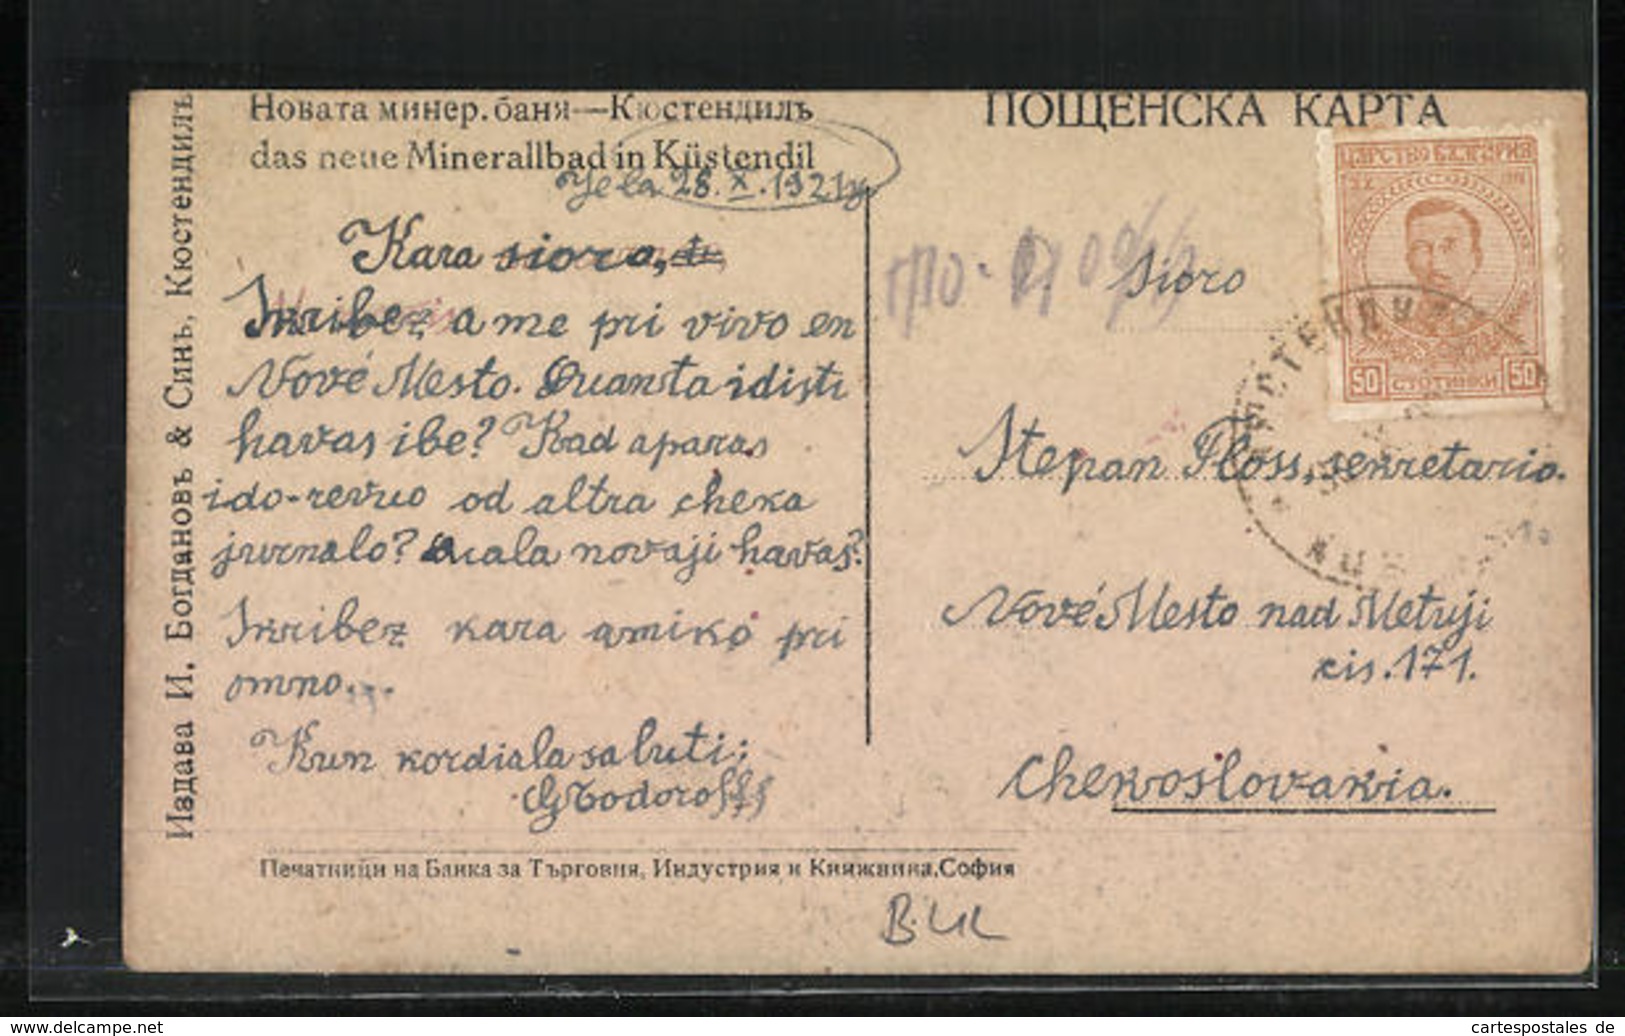 Новата минер. баня—Кюстендилъ
das neue Minerallbad in Küstendil
28.X.1921
Kara sioro,
Skribez a me pri vivo en
Nové Mesto. Quanta idisti
havas ibe? Kad aparas
ido-revuo od altra cheka
jurnalo? Quala novaji havas?
Skribez kara amiko pri
omno...
Kun kordiala saluti:
GTodoroff
Издава И. Богдановъ & Синъ, Кюстендилъ
ПОЩЕНСКА КАРТА
ЦАРСТВО БЪЛГАРИЯ
50 СТОТИНКИ 50
Sioro
Stepan Floss, sekretario.
Nové Mesto nad Metuji
cis. 171.
Chekoslovakia.
Печатници на Банка за Търговия, Индустрия и Книжнина. София
cartespostales de
www.cartespostales.eu